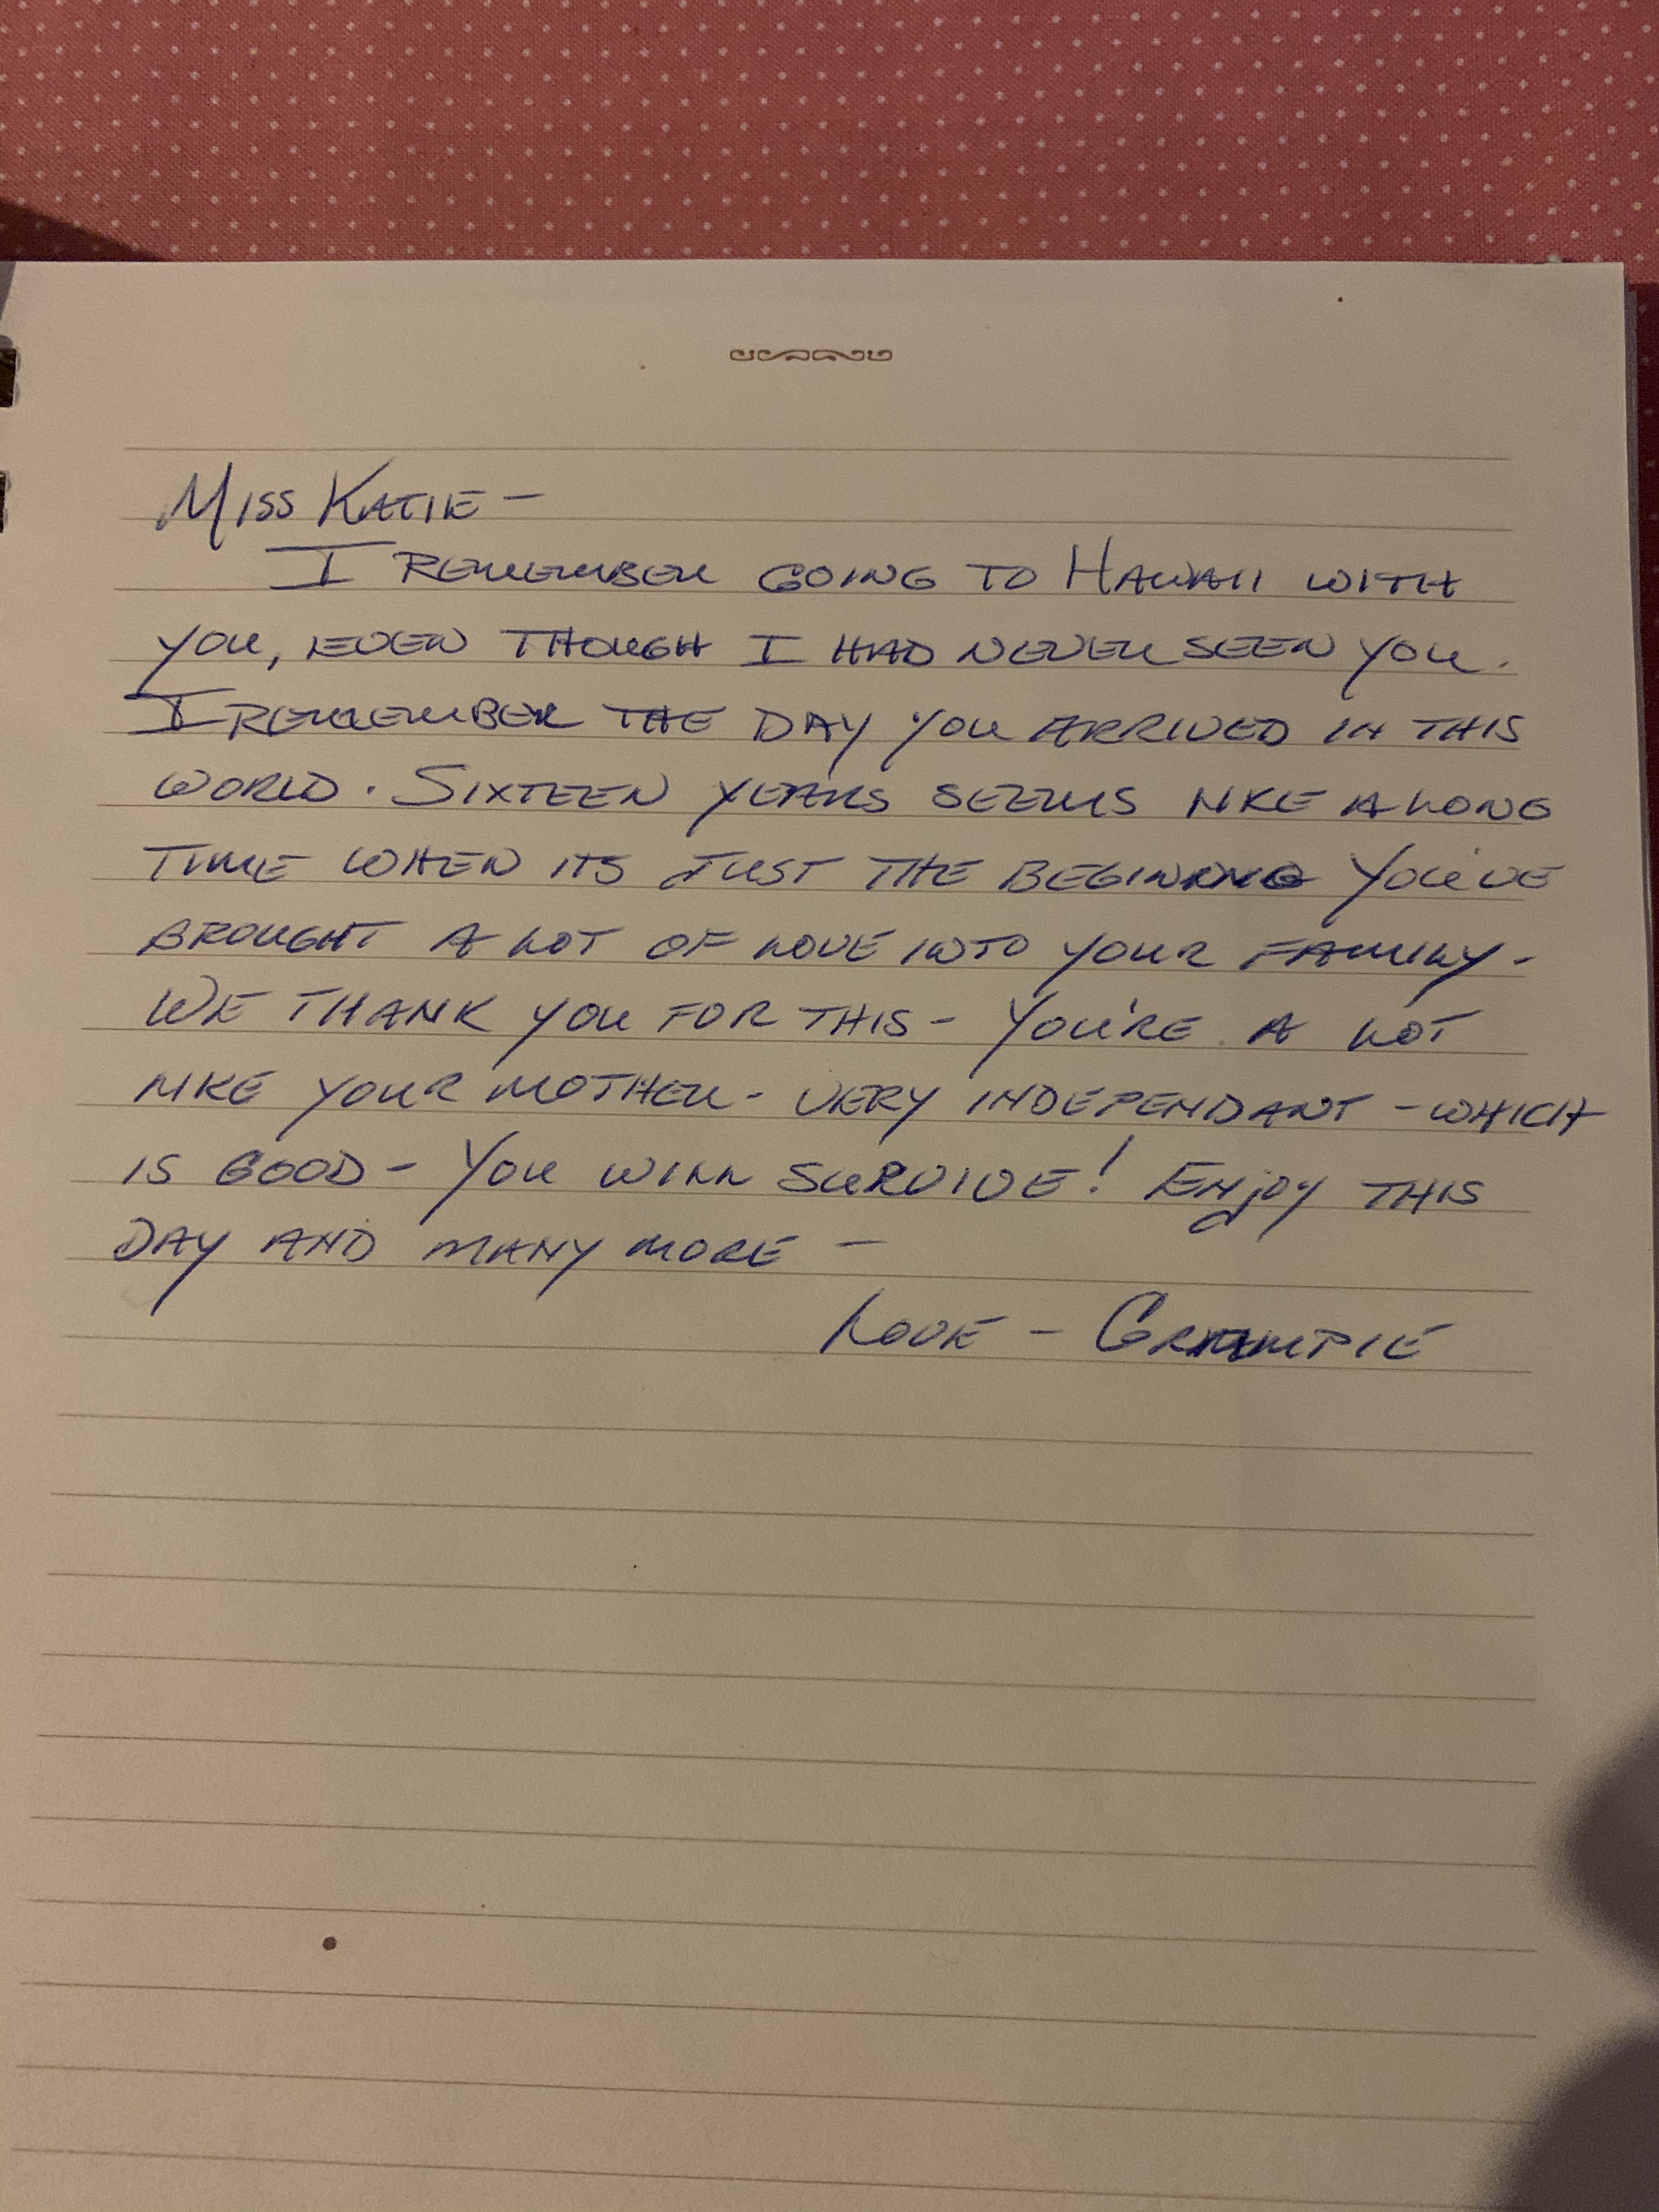 MISS KATIE –
I REMEMBER GOING TO HAWAII WITH
YOU, EVEN THOUGH I HAD NEVER SEEN YOU.
I REMEMBER THE DAY YOU ARRIVED IN THIS
WORLD. SIXTEEN YEARS SEEMS LIKE A LONG
TIME WHEN ITS JUST THE BEGINNING YOU'VE
BROUGHT A LOT OF LOVE INTO YOUR FAMILY -
WE THANK YOU FOR THIS - YOU'RE A LOT
LIKE YOUR MOTHER - VERY INDEPENDANT - WHICH
IS GOOD - YOU WILL SURVIVE! ENJOY THIS
DAY AND MANY MORE –
LOVE - GRAMPIE